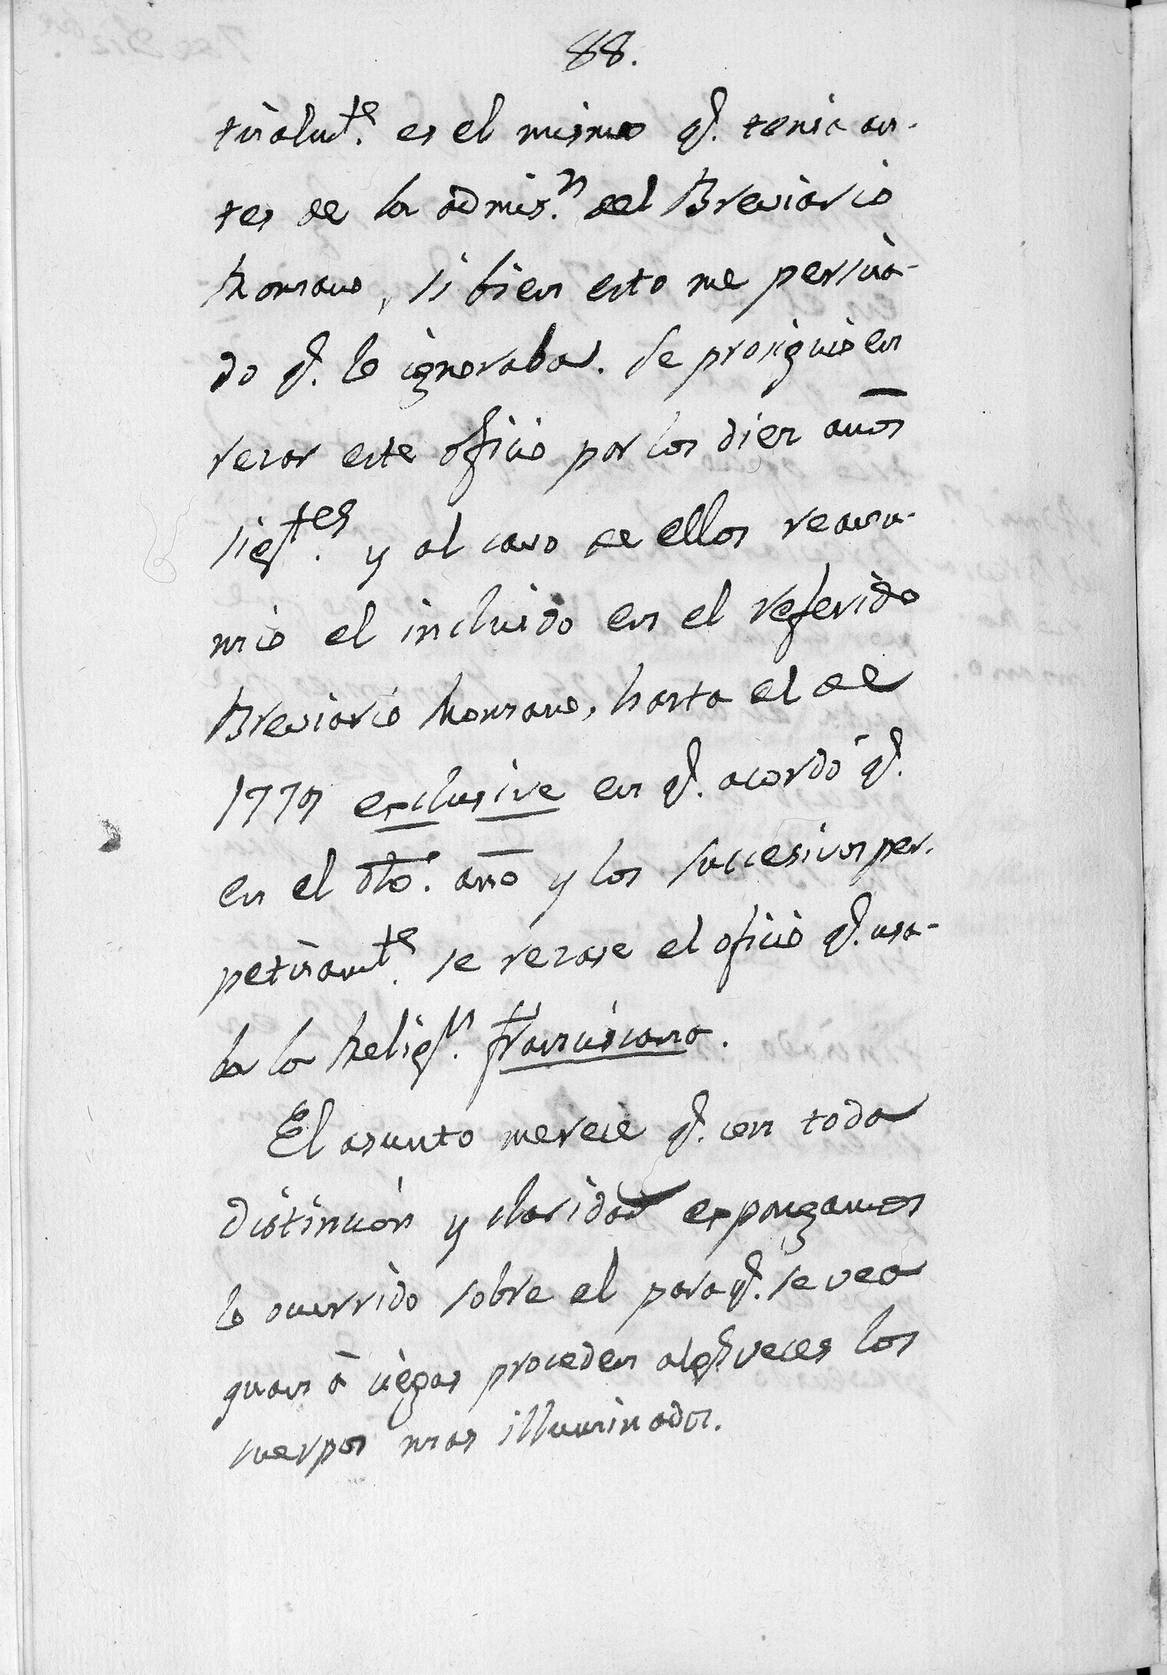 88.
tinalmte. es el mismo q. tenia an-
tes de la admisn. del Breviario
Romano, si bien esto me persua-
do q. lo ignoraba. Se prosiguio en
rezar este oficio por los diez años
sigtes. y al cavo de ellos reasu-
mio el incluido en el referido
Breviario Romano, hasta el de
1779 exclusive en q. acordó q.
en el dto. año y los succesivos per-
petuamte. se rezase el oficio q. usa-
ba la Relign. franciscana.
El asunto merece q. con toda
distinción y claridad expongamos
lo ocurrido sobre el para q. se vea
quan à ciegas proceden algs. veces los
cuerpos mas illuminados.